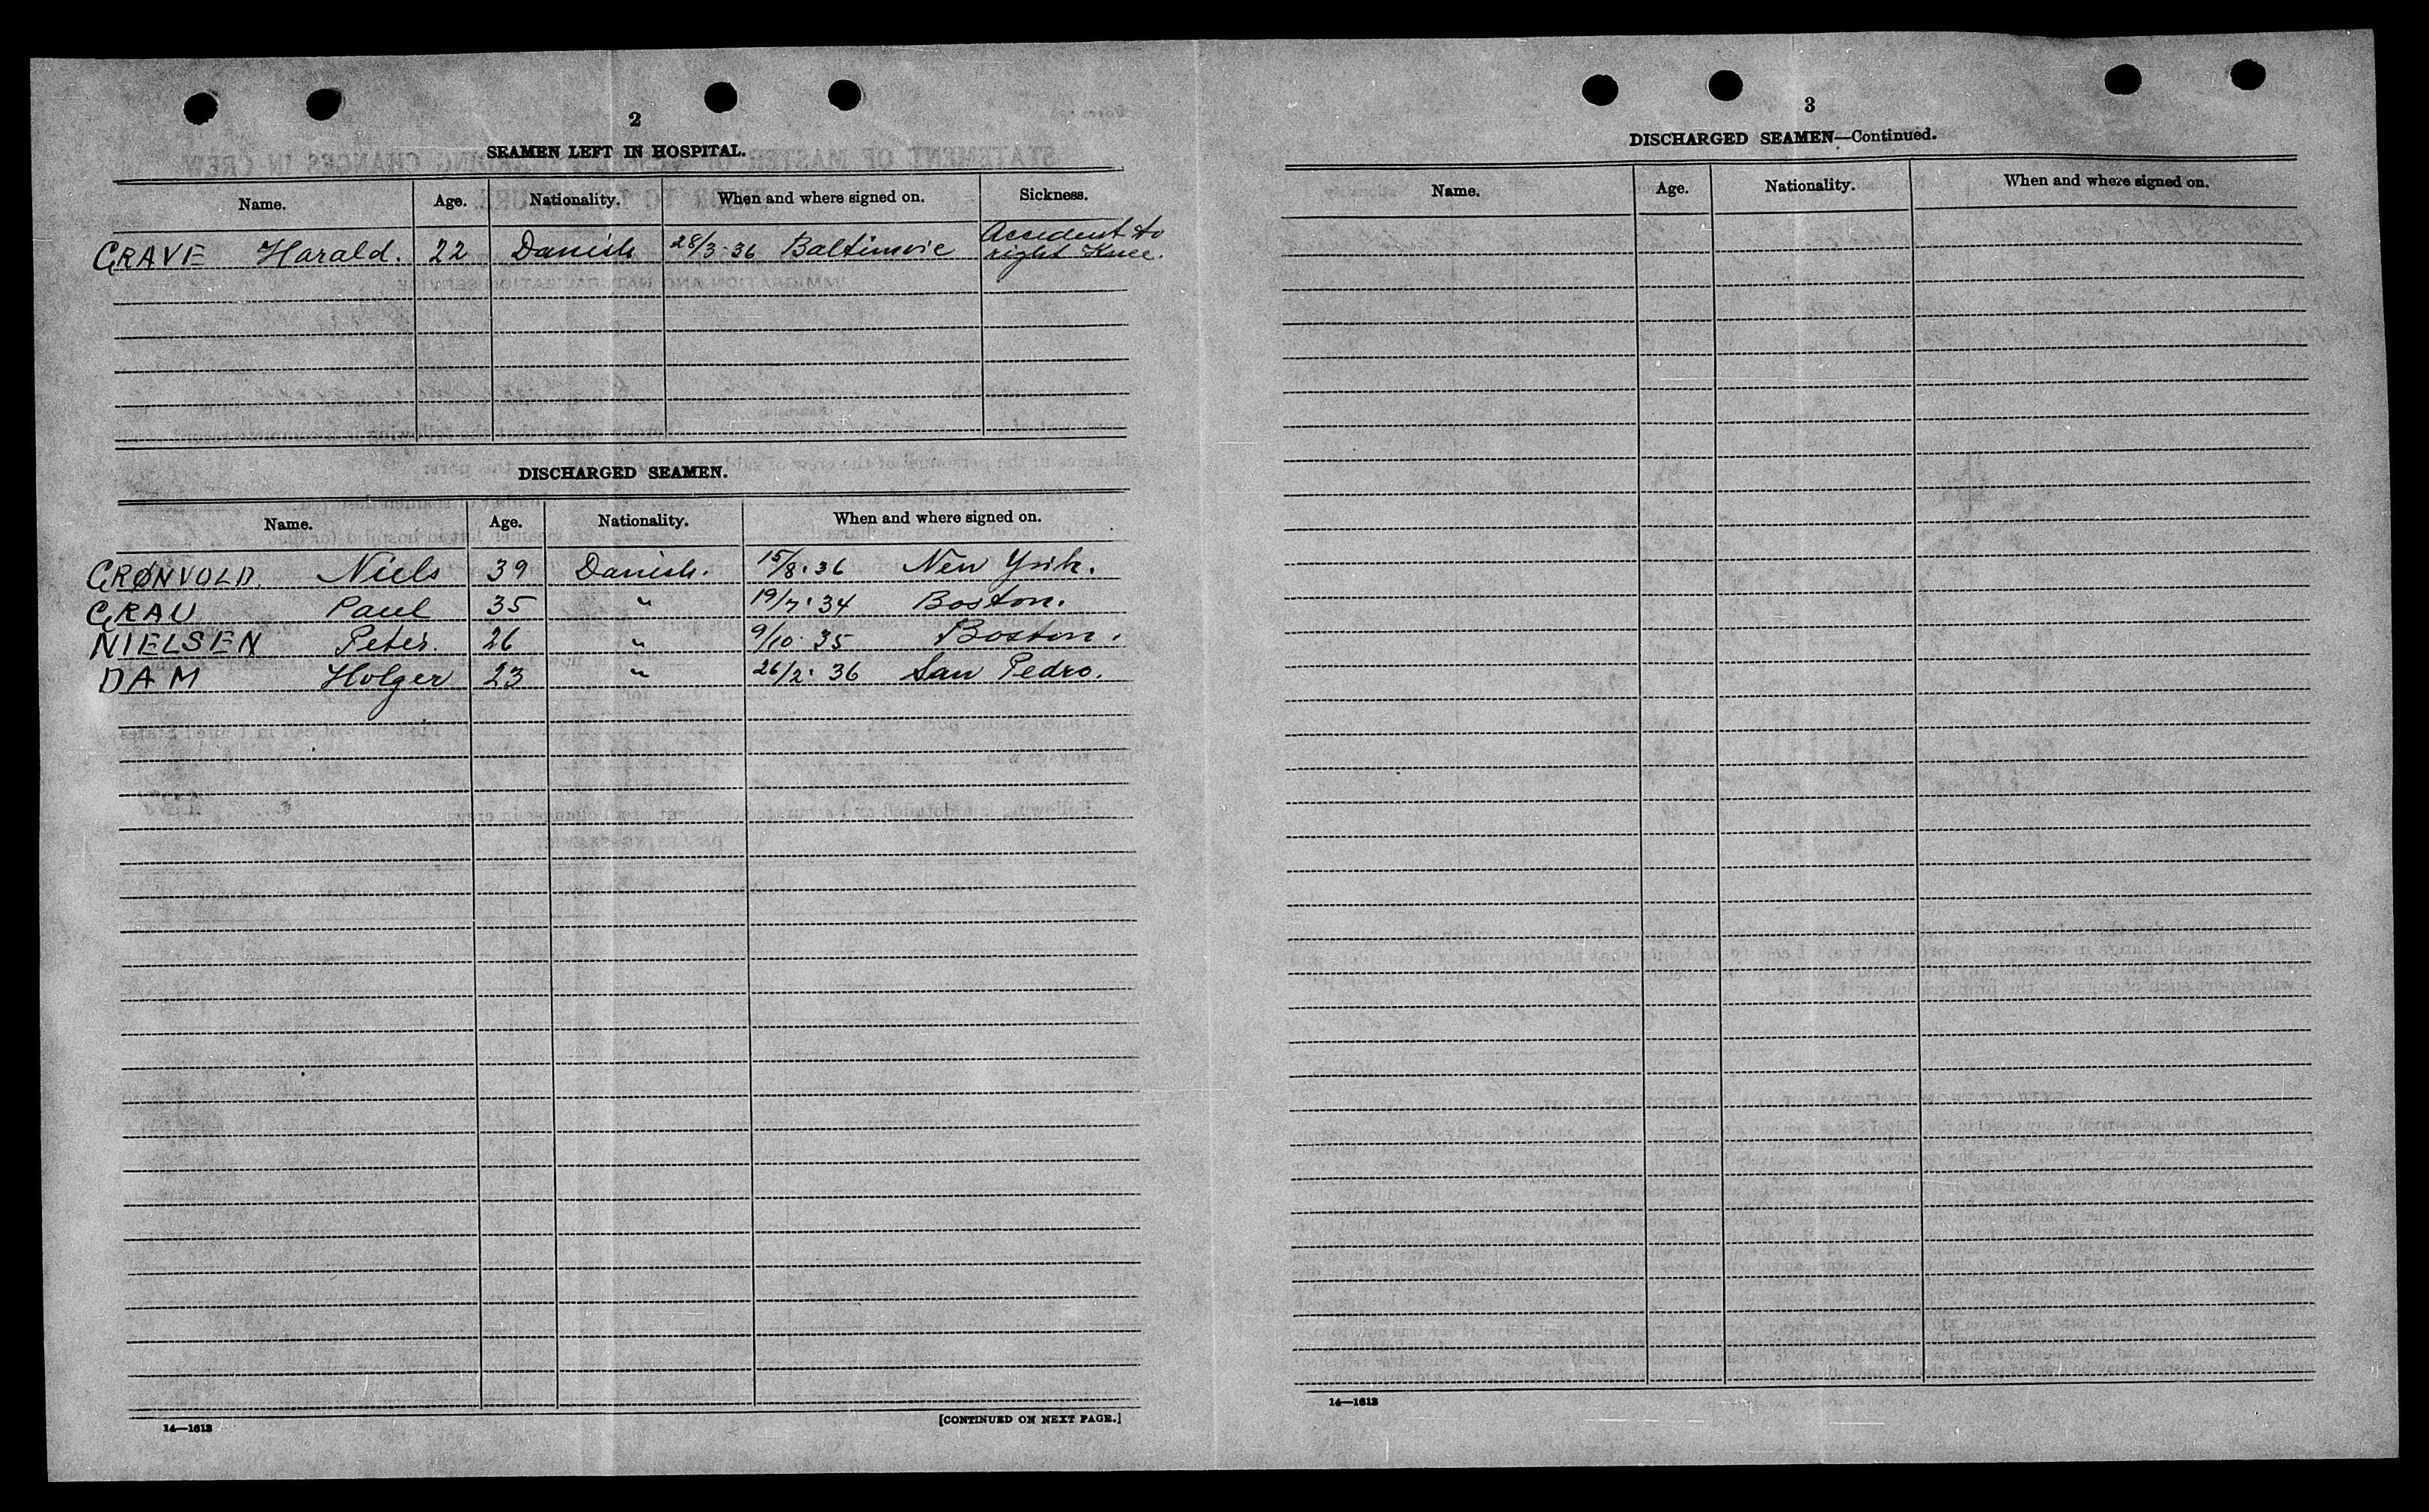 2
SEAMEN LEFT IN HOSPITAL.
Name. Age. Nationality. When and where signed on. Sickness.
GRAVE Harald. 22 Danish 28/3-36 Baltimore Accident to
right Knee.
DISCHARGED SEAMEN.
Name. Age. Nationality. When and where signed on.
GRØNVOLD. Niels 39 Danish. 15/8.36 New York.
GRAU Paul 35 " 19/7.34 Boston.
NIELSEN Peter. 26 " 9/10.35 Boston.
DAM Holger 23 " 26/2.36 San Pedro.
14—1613
[CONTINUED ON NEXT PAGE.]
3
DISCHARGED SEAMEN—Continued.
Name. Age. Nationality. When and where signed on.
14—1613